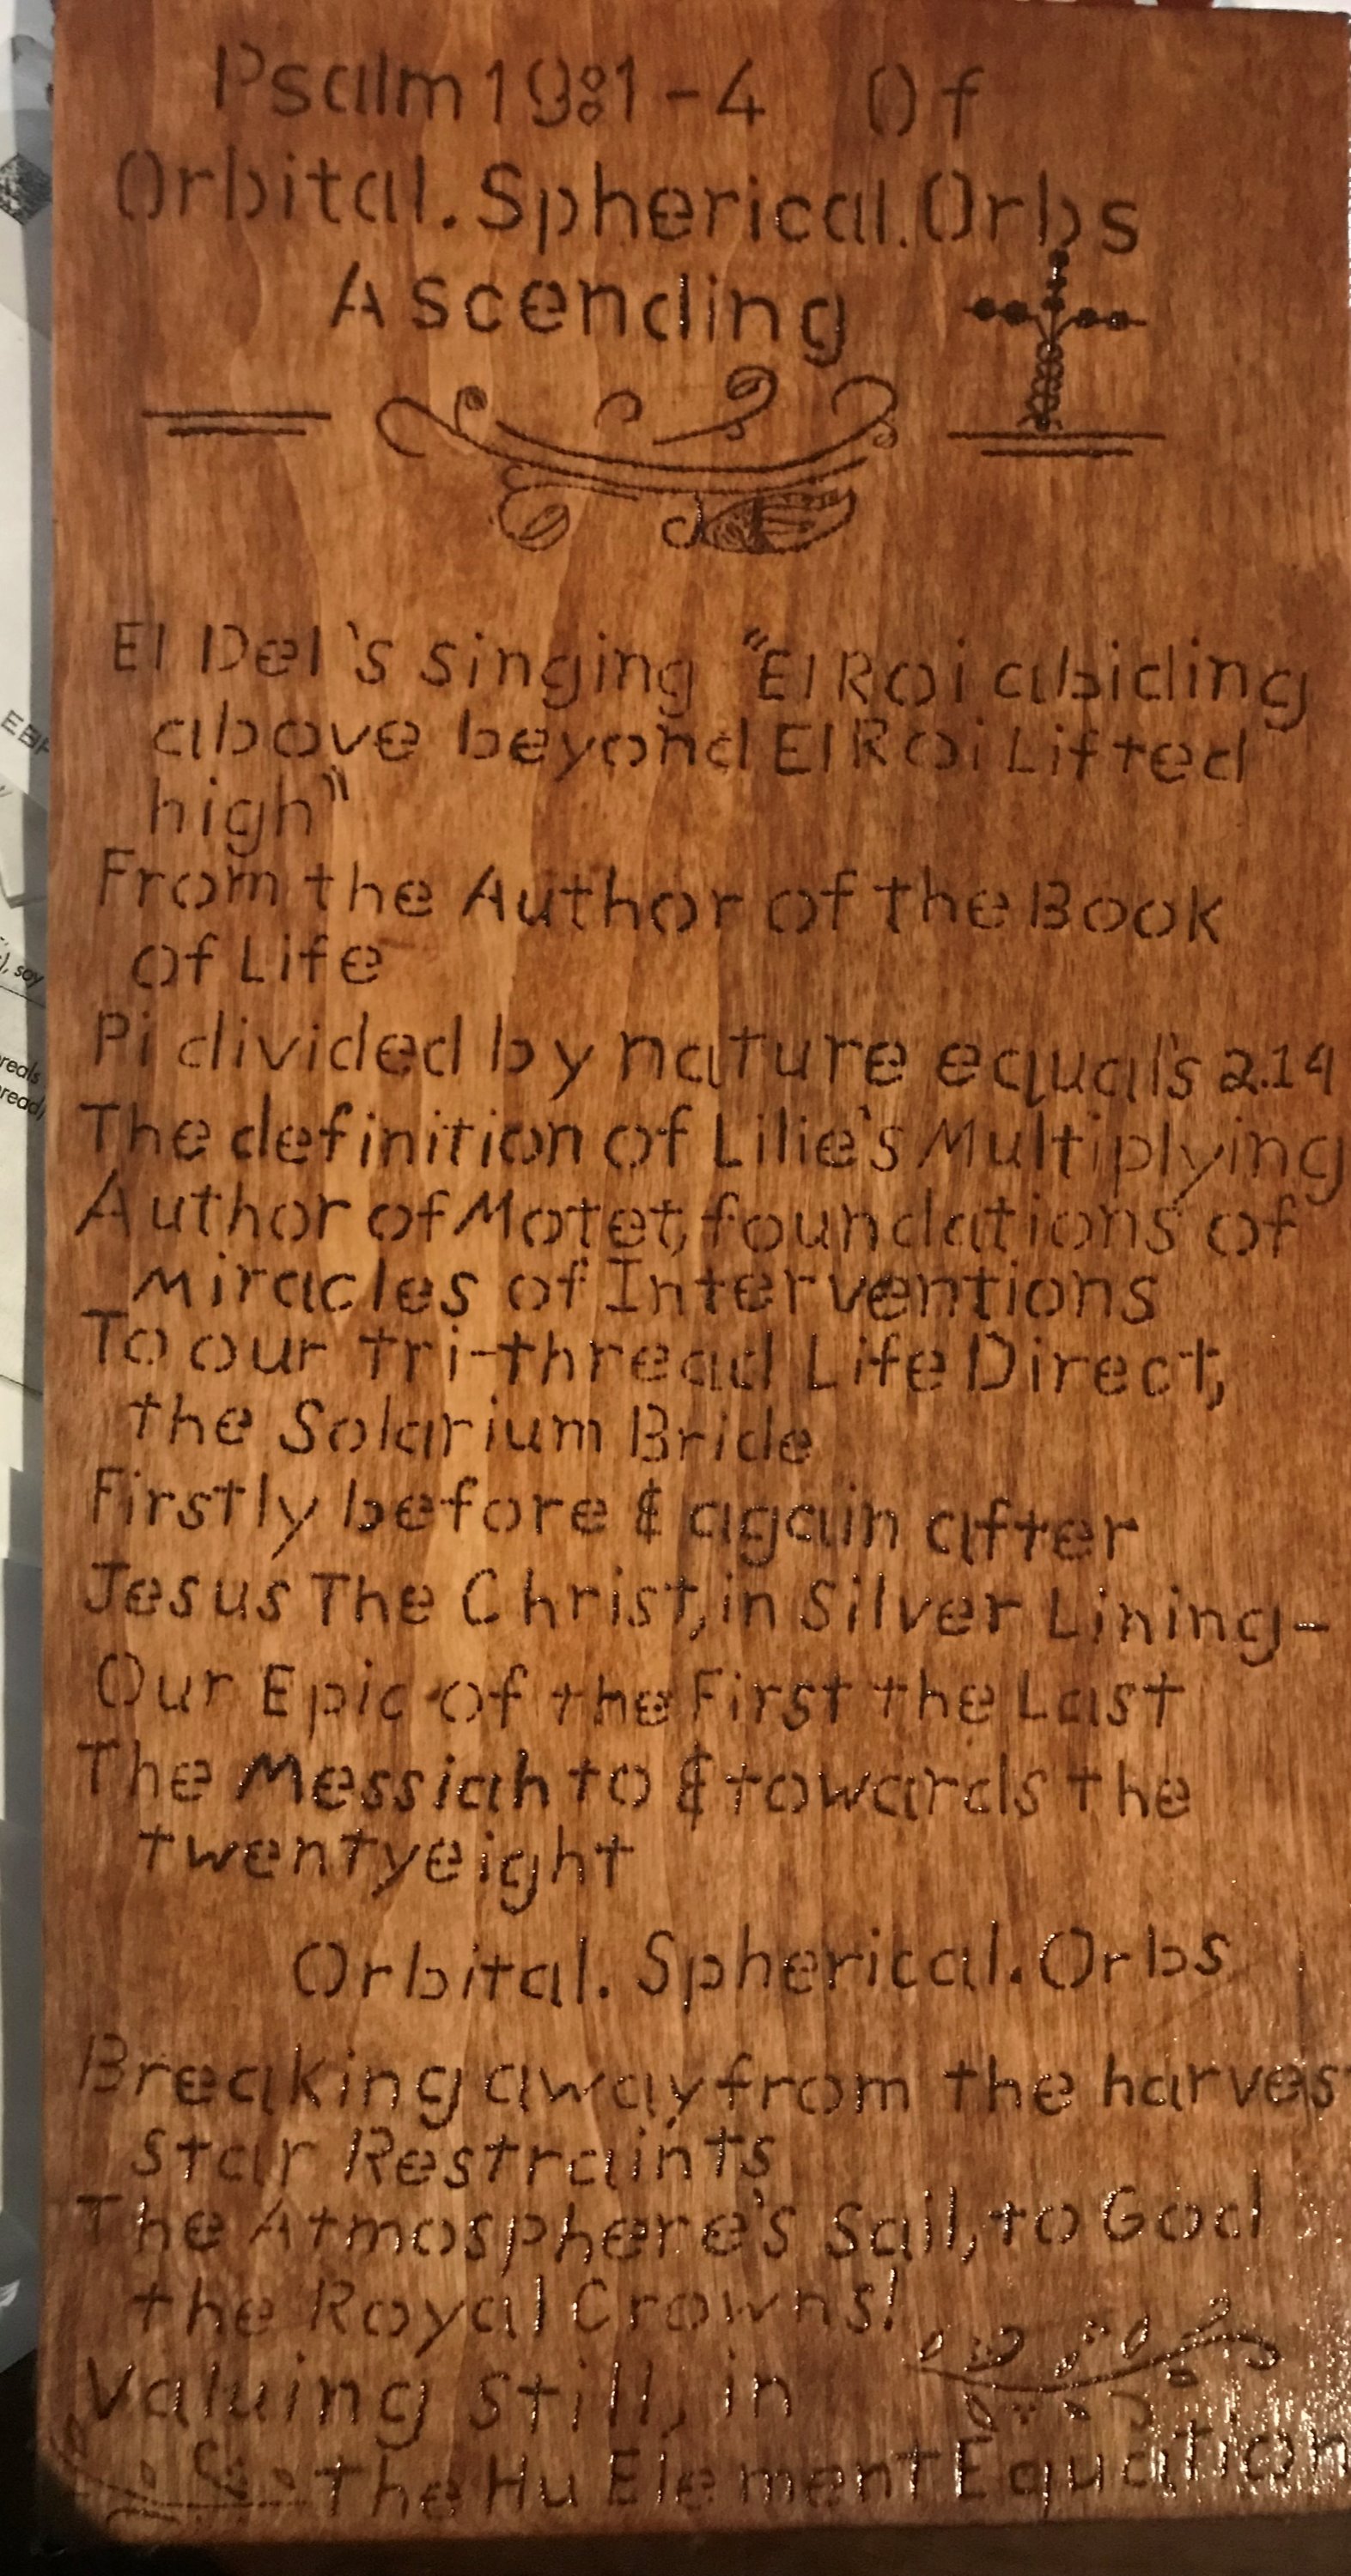 Psalm 19:1-4 Of
Orbital. Spherical. Orbs
Ascending
El Del's singing "El Roi abiding
above beyond El Roi Lifted
high"
From the Author of the Book
of Life
Pi divided by nature equal's 2.14
The definition of Lilie's Multiplying
Author of Motet, foundations of
Miracles of Interventions
To our tri-thread Life Direct,
the Solarium Bride
Firstly before & again after
Jesus The Christ, in Silver Lining-
Our Epic of the First the Last
The Messiah to & towards the
twentyeight
Orbital. Spherical. Orbs
Breaking away from the harvest
star Restraints
The Atmosphere's Sail, to God
the Royal Crowns!
Valuing still, in
the Hu Element Equation
soy
reals